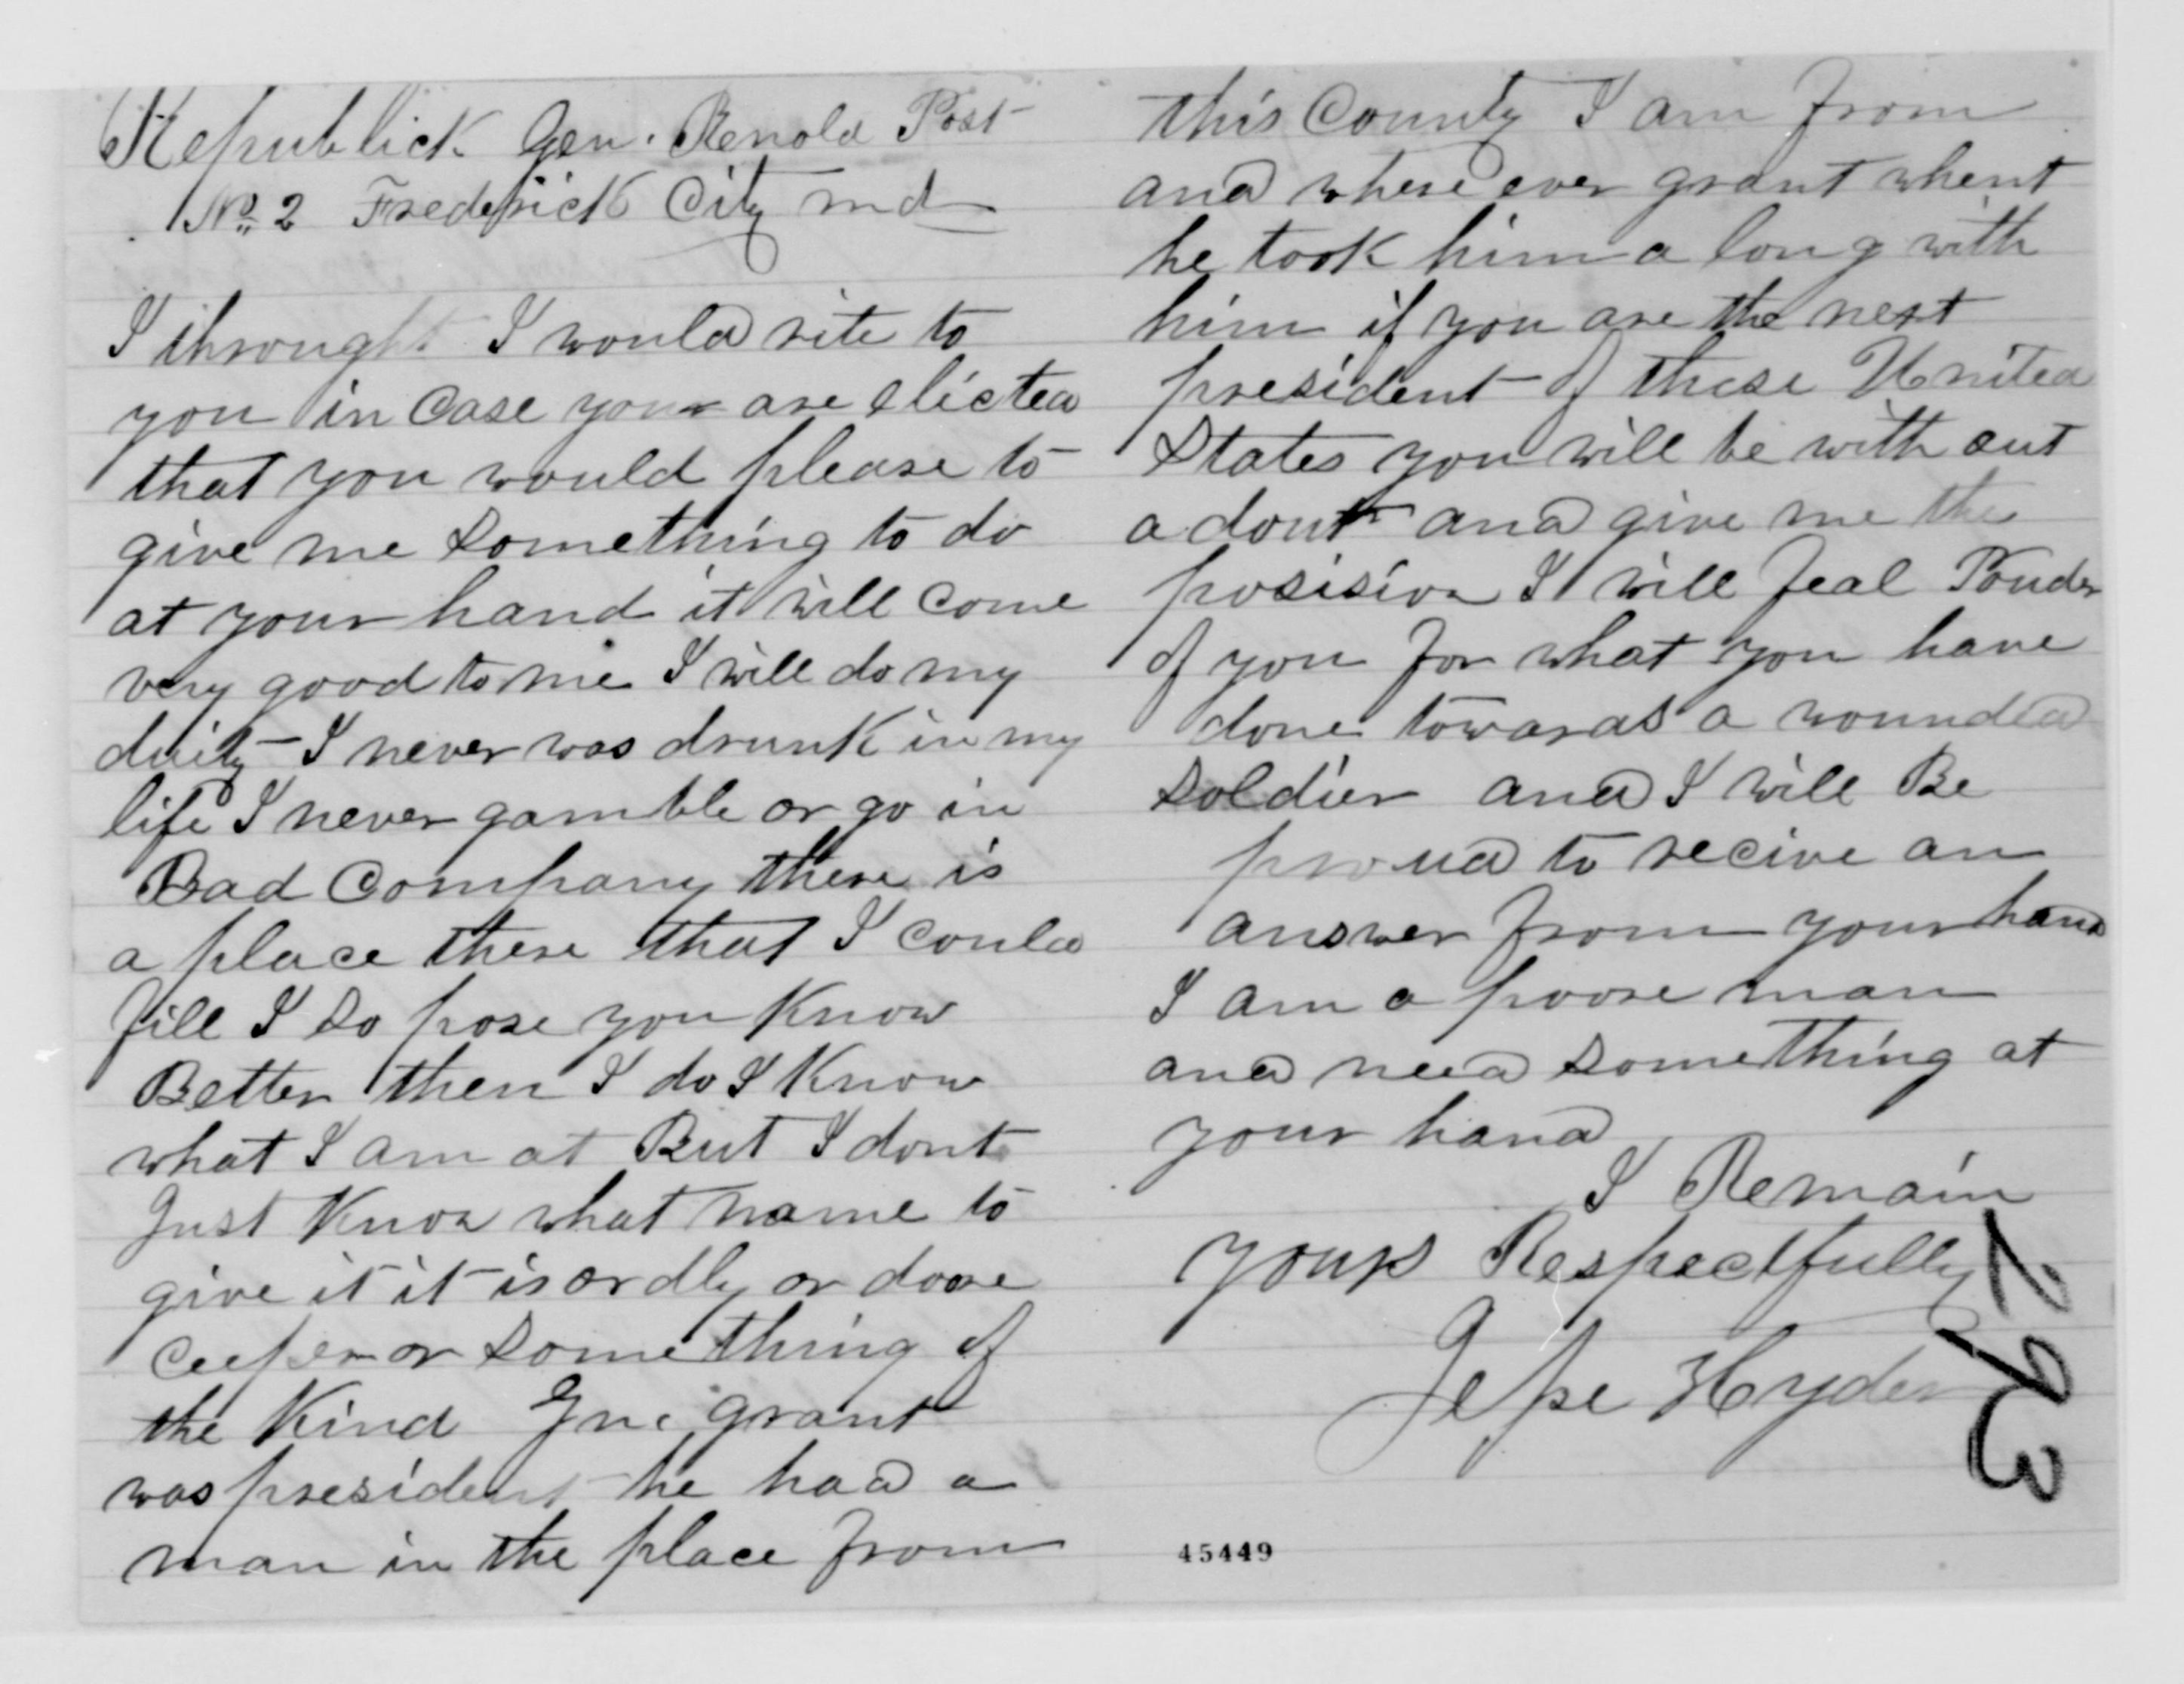 Republick Gen. Renold Post
No. 2 Frederick City md
I throught I would rite to
you in Case your are elicted
that you would please to
give me something to do
at your hand it will come
very good to me I will do my
duity I never was drunk in my
life I never gamble or go in
Bad Company there is
a place there that I could
fill I so pose you Know
Better then I do I Know
what I am at But I dont
Just Know what name to
give it it is ordly or doore
ceeper or something of
the Kind Gn. grant
was president he had a
man in the place from
this County I am from
and where ever grant whent
he took him a long with
him if you are the next
president of these United
States you will be with out
a dout and give me the
posision I will feal Prouder
of you for what you have
done towards a wounded
soldier and I will Be
proud to recive an
answer from your hand
I am a poore man
and need something at
your hand
I Remain
yours Respectfully
Jesse Hyder
293
45449